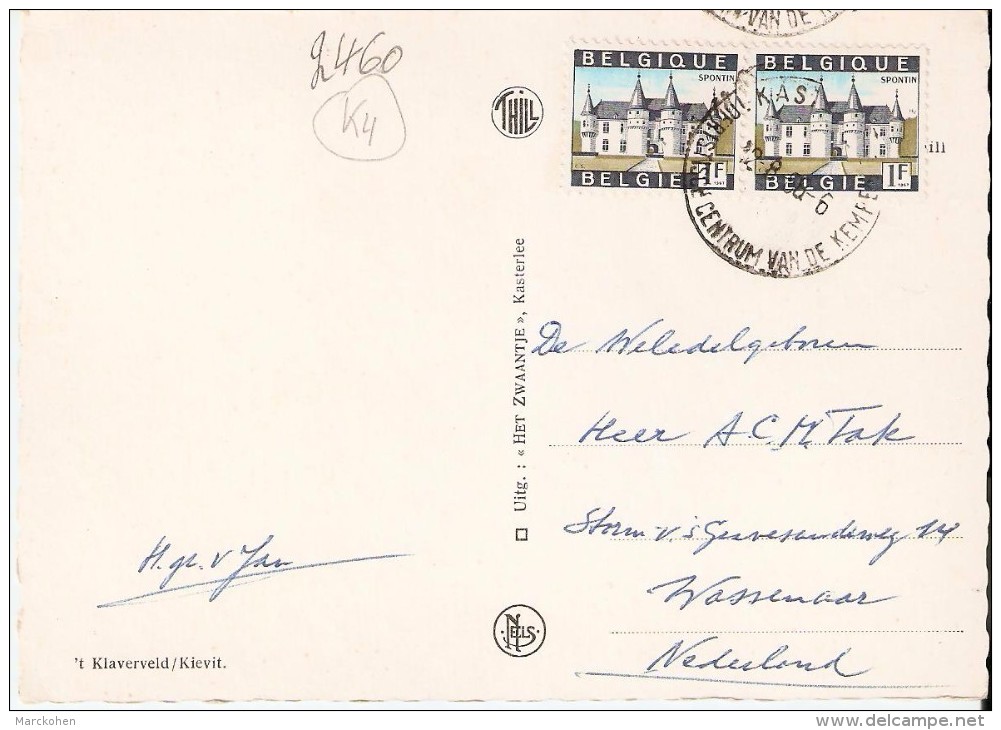 VAN DE
2460
K4
THILL
BELGIQUE
SPONTIN
BELGIE 1F
BELGIQUE
SPONTIN
BELGIE 1F
1967
KAS
CENTRUM VAN DE KEMPE
ill
Uitg. : « HET ZWAANTJE », Kasterlee
De Weledelgeboren
Heer A.C.M. Tak
Storm v. 's Gravesandeweg 14
Wassenaar
Nederland
H. gr. v Jan
NELS
't Klaverveld/Kievit.
Marckohen
delcampe.net